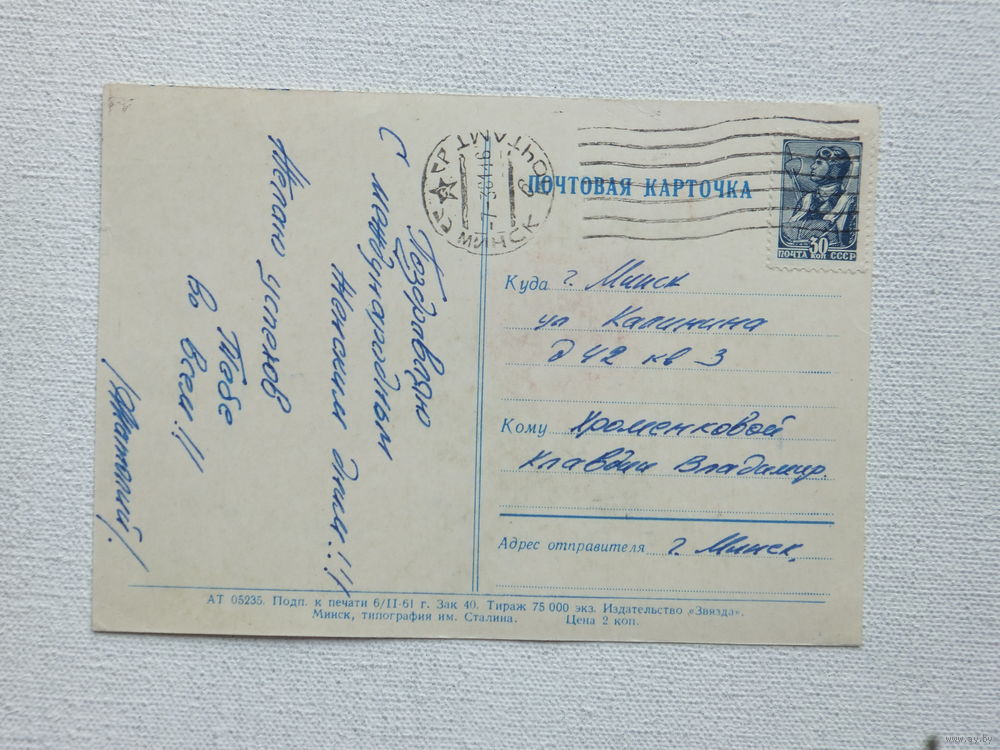 Поздравляю
С международным
Женским днем!!!
Желаю успехов
Тебе
во всем!!
Анатолий!
МИНСК ПОЧТАМТ
ПОЧТОВАЯ КАРТОЧКА
30
ПОЧТА КОП СССР
Куда г. Минск
ул Калинина
д 42 кв 3
Кому Хроменковой
Клавдии Владимир.
Адрес отправителя г. Минск.
АТ 05235. Подп. к печати 6/II-61 г. Зак 40. Тираж 75 000 экз. Издательство «Звязда».
Минск, типография им. Сталина. Цена 2 коп.
www.ay.by